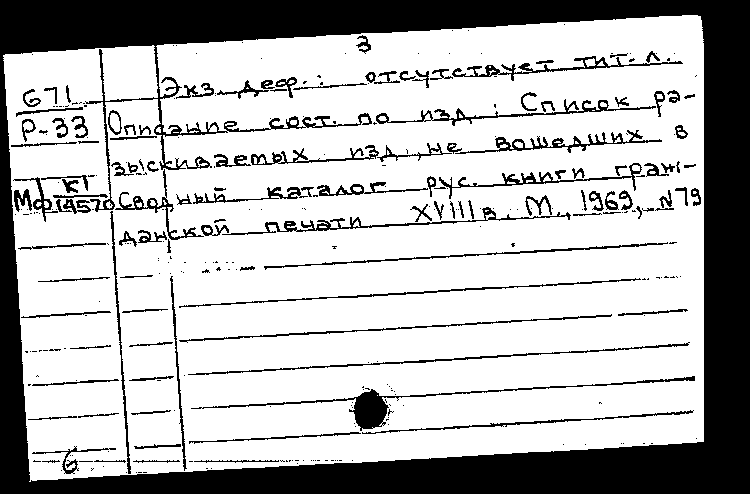 3
Экз. деф.: отсутствует тит. л.
671
Р-33
Описание сост. по изд.: Список ра-
зыскиваемых изд., не вошедших в
Мф К1
14570
Сводный каталог рус. книги граж-
данской печати XVIII в. М., 1969, №79
6